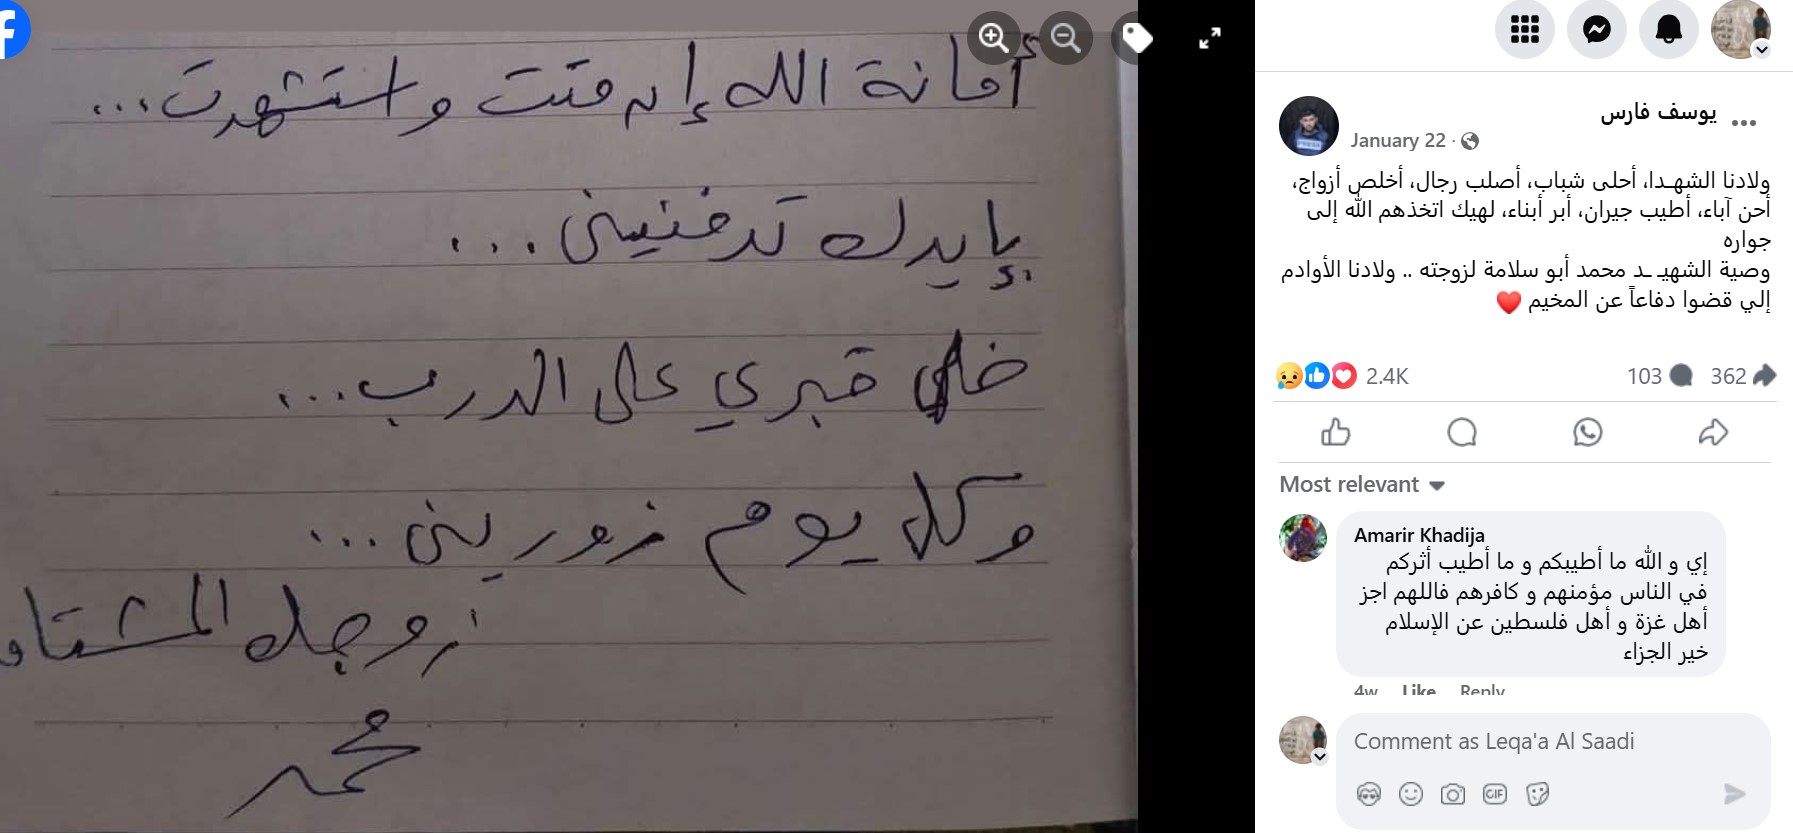 أمانة الله إن متت واستشهدت...
بإيدك تدفنيني...
خلي قبري على الدرب...
وكل يوم زوريني...
زوجك المشتاق
محمد
يوسف فارس
January 22
ولادنا الشهـدا، أحلى شباب، أصلب رجال، أخلص أزواج،
أحن آباء، أطيب جيران، أبر أبناء، لهيك اتخذهم الله إلى
جواره
وصية الشهيـ ـد محمد أبو سلامة لزوجته .. ولادنا الأوادم
إلي قضوا دفاعاً عن المخيم ❤️
2.4K
103
362
Most relevant
Amarir Khadija
إي و الله ما أطيبكم و ما أطيب أثركم
في الناس مؤمنهم و كافرهم فاللهم اجز
أهل غزة و أهل فلسطين عن الإسلام
خير الجزاء
4w Like Reply
Comment as Leqa'a Al Saadi
GIF